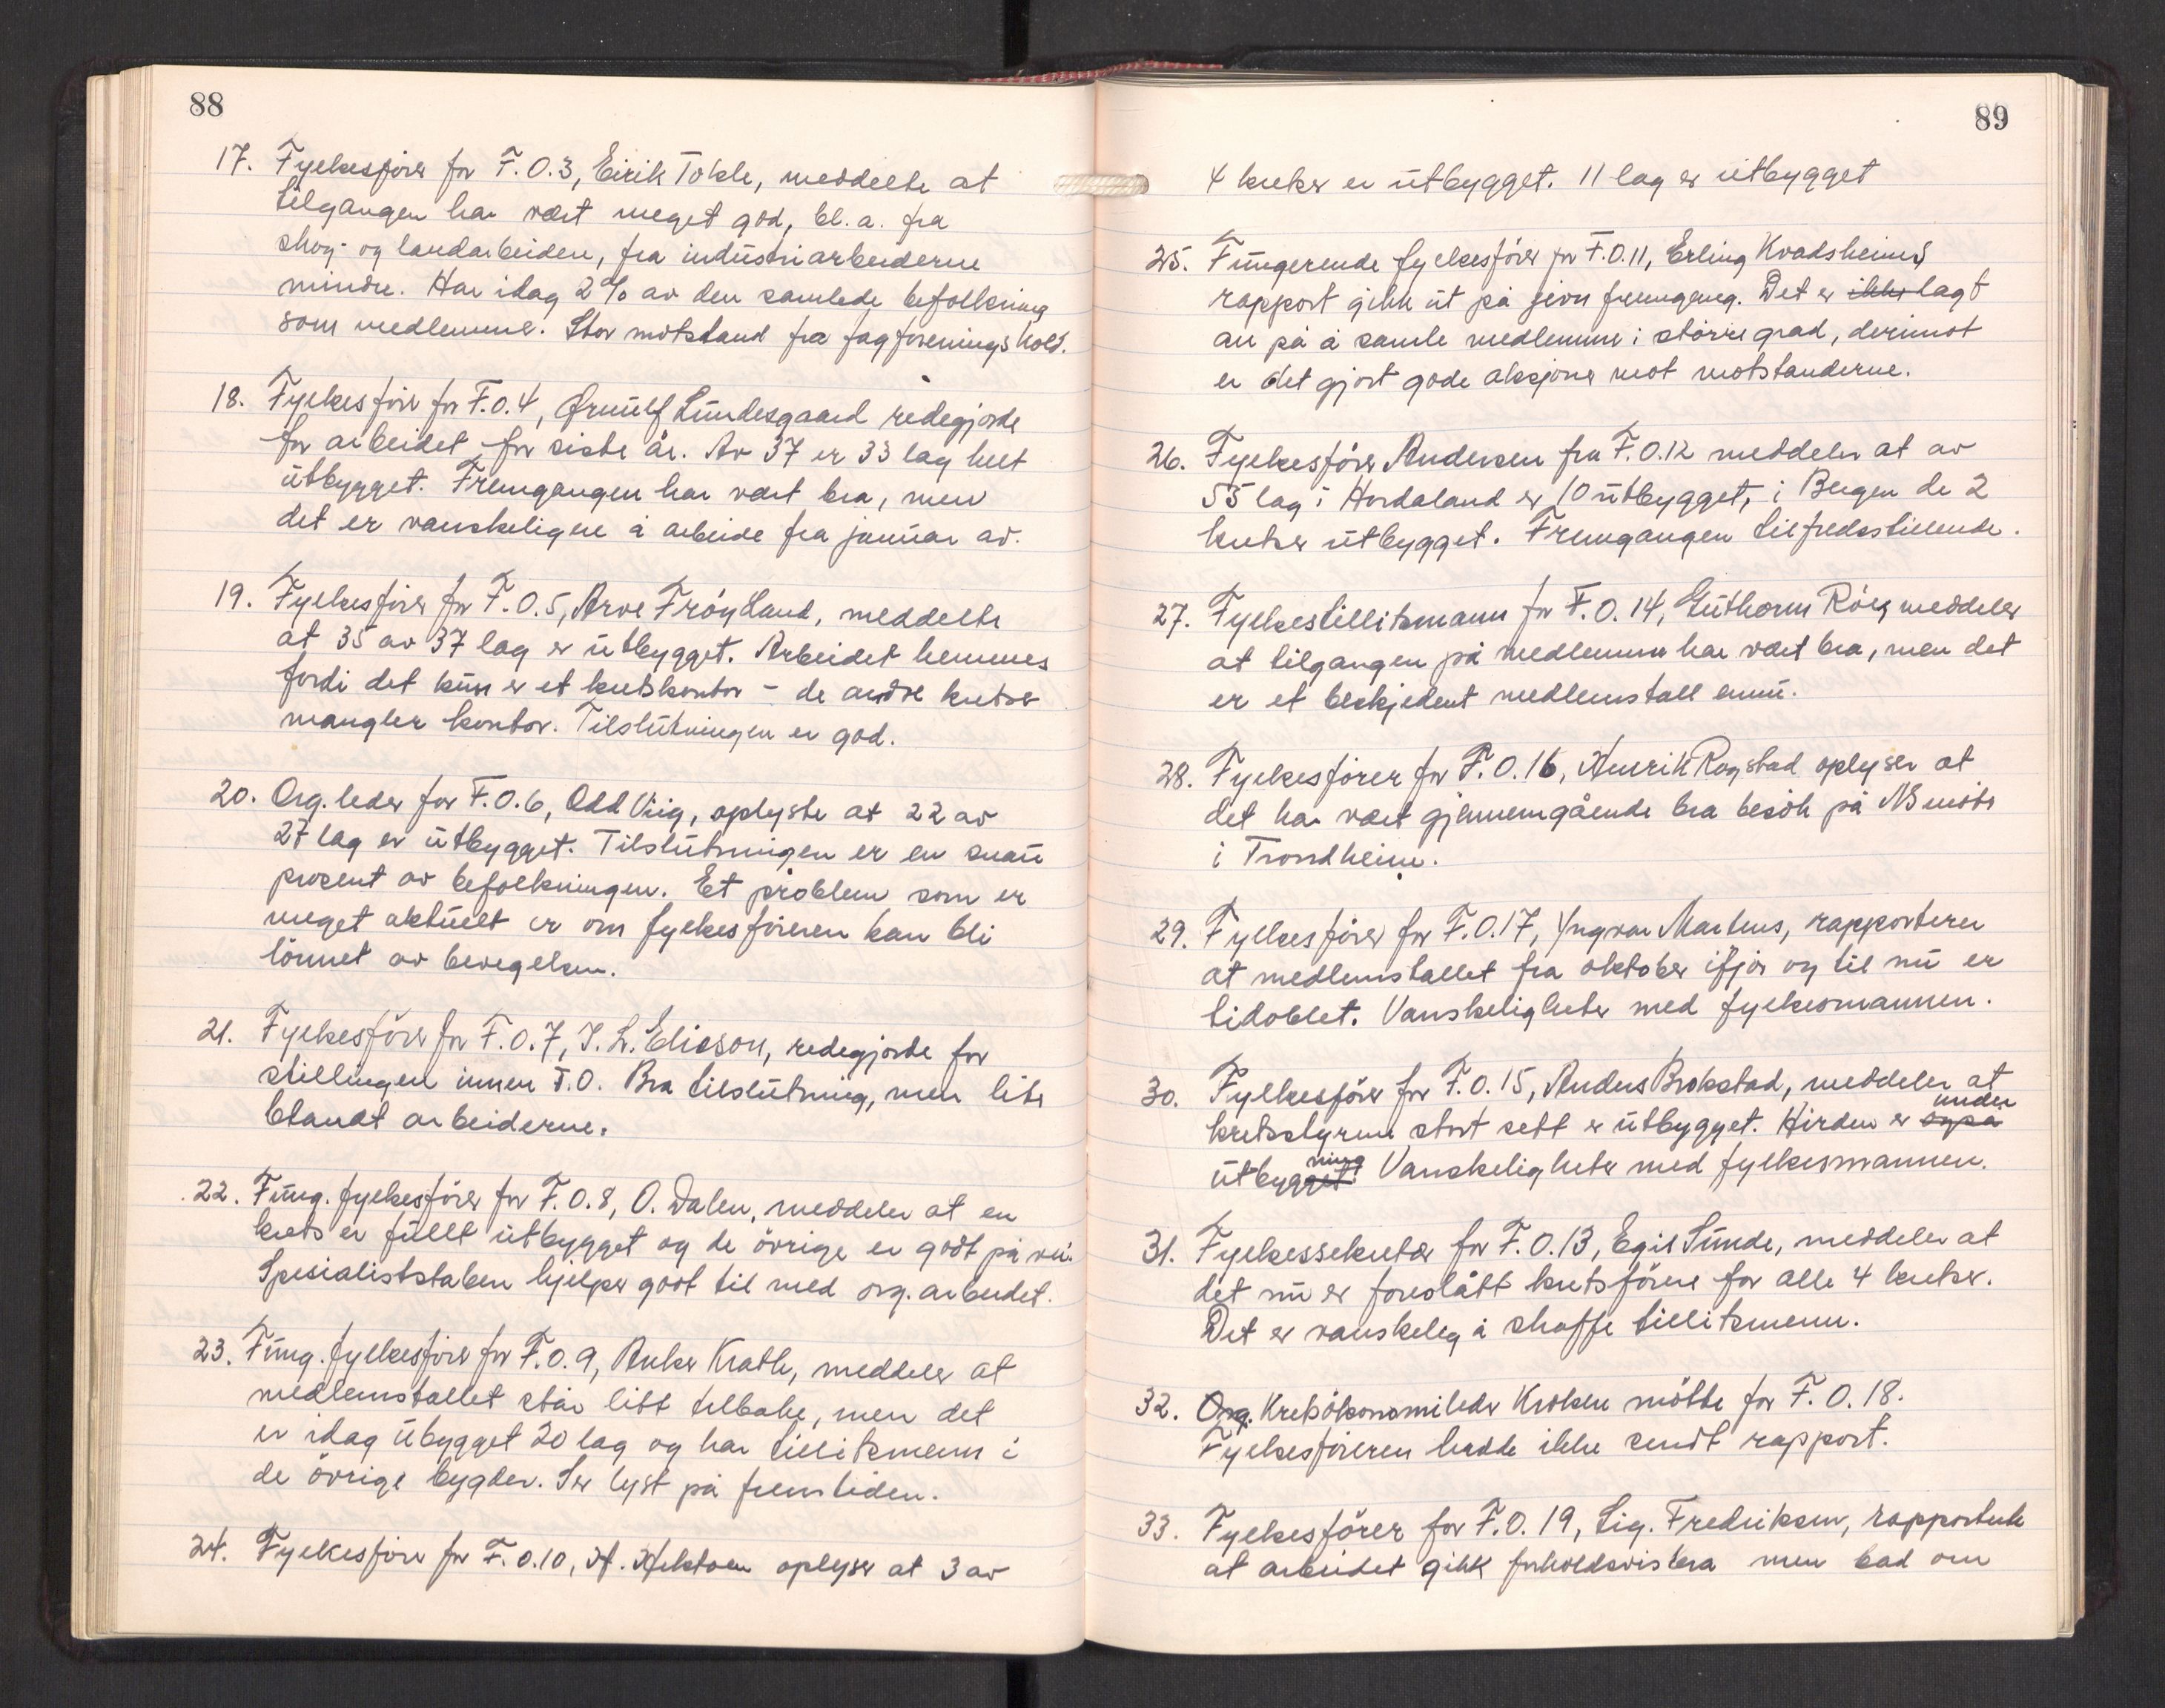 88
17. Fylkesfører for F.O.3, Eirik Tokle, meddelte at
tilgangen har vært meget god, bl.a. fra
skog- og landarbeidere, fra industriarbeiderne
mindre. Har idag 2% av den samlede befolkning
som medlemmer. Stor motstand fra fagforeningshold.
18. Fylkesfører for F.O.4, Ørnulf Lundesgaard redegjorde
for arbeidet for siste år. Av 37 er 33 lag helt
utbygget. Fremgangen har vært bra, men
det er vanskeligere å arbeide fra januar av.
19. Fylkesfører for F.O.5, Arve Frøyland, meddelte
at 35 av 37 lag er utbygget. Arbeidet hemmes
fordi det kun er et kretskontor - de andre kretser
mangler kontor. Tilslutningen er god.
20. Org. leder for F.O.6, Odd Viig, oplyste at 22 av
27 lag er utbygget. Tilslutningen er en snau
prosent av befolkningen. Et problem som er
meget aktuelt er om fylkesføreren kan bli
lønnet av bevegelsen.
21. Fylkesfører for F.O.7, J.L. Elieson, redegjorde for
stillingen innen F.O. Bra tilslutning, men lite
blandt arbeiderne.
22. Fung. fylkesfører for F.O.8, O. Dalen, meddeler at en
krets er fullt utbygget og de øvrige er godt på vei.
Spesialiststaben hjelper godt til med org. arbeidet.
23. Fung. fylkesfører for F.O.9, Anker Kratte, meddeler at
medlemstallet står litt tilbake, men det
er idag ubygget 20 lag og har tillitsmenn i
de øvrige bygder. Ser lyst på fremtiden.
24. Fylkesfører for F.O.10, H. Hektoen oplyser at 3 av
89
4 kretser er utbygget. 11 lag er utbygget
25. Fungerende fylkesfører for F.O.11, Erling Kvadsheims
rapport gikk ut på jevn fremgang. Det er ikke lagt
an på å samle medlemmer i større grad, derimot
er det gjort gode aksjoner mot motstanderne.
26. Fylkesfører Andersen fra F.O.12 meddeler at av
55 lag i Hordaland er 10 utbygget, i Bergen de 2
kretser utbygget. Fremgangen tilfredsstillende.
27. Fylkestillitsmann for F.O.14, Guthorm Røes meddeler
at tilgangen på medlemmer har vært bra, men det
er et beskjedent medlemstall ennu.
28. Fylkesfører for F.O.16, Henrik Rogstad oplyser at
det har vært gjennemgående bra besøk på NS møter
i Trondheim.
29. Fylkesfører for F.O.17, Yngvar Martens, rapporterer
at medlemstallet fra oktober ifjor og til nu er
tidoblet. Vanskeligheter med fylkesmannen.
30. Fylkesfører for F.O.15, Anders Brokstad, meddeler at
kretsstyrene stort sett er utbygget. Hirden er også under
utbygget. ning Vanskeligheter med fylkesmannen.
31. Fylkessekretær for F.O.13, Egil Sunde, meddeler at
det nu er foreslått kretsførere for alle 4 kretser.
Det er vanskeleg å skaffe tillitsmenn.
32. Org. Kretsøkonomileder Kroken møtte for F.O.18.
Fylkesføreren hadde ikke sendt rapport.
33. Fylkesfører for F.O.19, Sig. Fredriksen, rapporterte
at arbeidet gikk forholdsvis bra men bad om